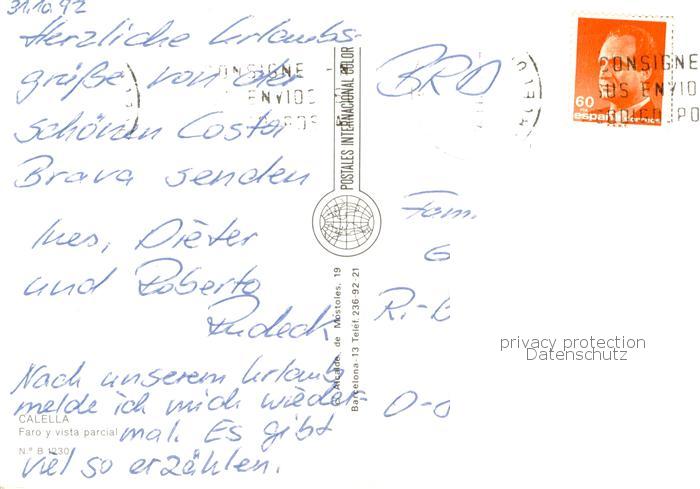 31.10.92
Herzliche Urlaubs-
grüße von der
schönen Costa
Brava senden
Ines, Dieter
und Roberto
Nach unserem Urlaub
melde ich mich wieder-
mal. Es gibt
viel so erzählen.
CALELLA
Faro y vista parcial
N.º B 1230
POSTALES INTERNACIONAL COLOR
Alcalde de Móstoles, 19
Barcelona-13 Teléf. 236-92-21
BRD
Fam.
G
Ri-
O-
CONSIGNE
ENVIOS
60
españa
CONSIGNE
SUS ENVIO
CODIGO PO
privacy protection
Datenschutz